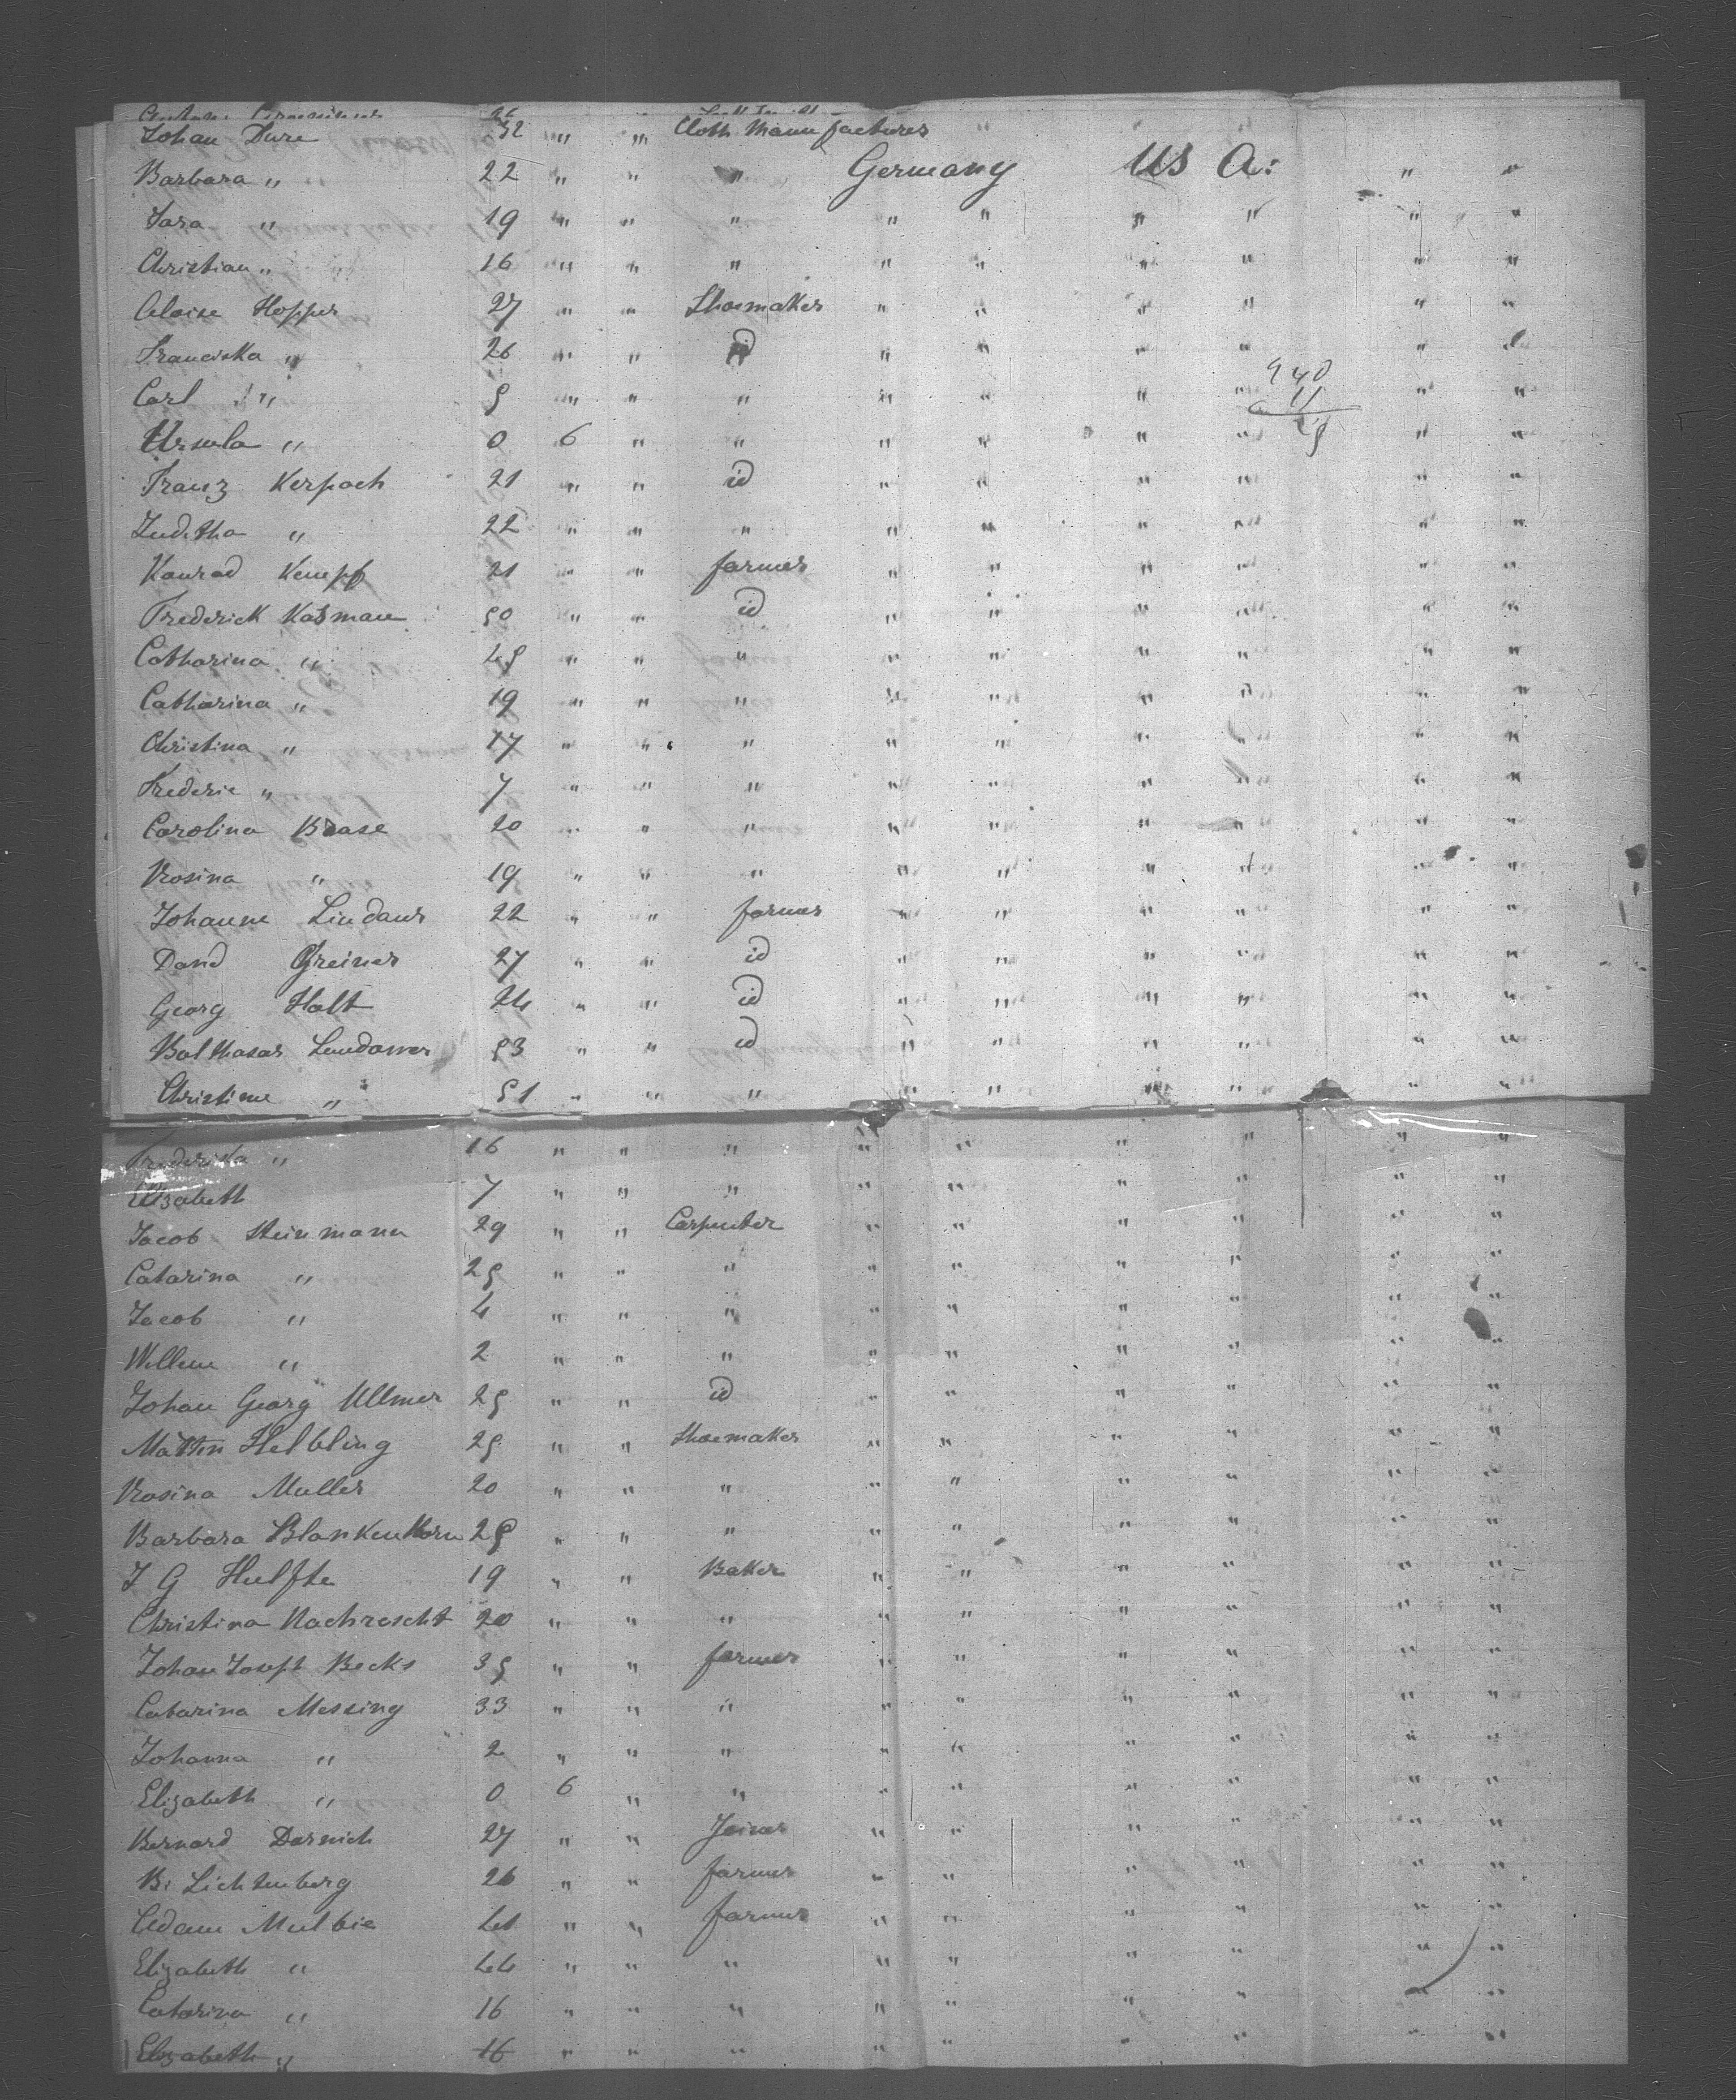 Johan Dure 32 " " Cloth Manufacturer "
Barbara " 22 " " " Germany US A: " "
Sara " 19 " " " " " " " " "
Christian " 16 " " " " " " " " "
Aloise Hopper 27 " " Shoemaker " " " " " "
Franciska " 26 " " id " " " " "
940
Carl " 5 " " " " " " " " "
11
Ursula " 0 6 " " " " " " " "
Franz Kerpach 21 " " id " " " " " "
Juditha " 22 " " " " " " " " "
Konrad Kempf 21 " " farmer " " " " " "
Frederick Kasman 50 " " id " " " " " "
Catharina " 45 " " " " " " " " "
Catharina " 19 " " " " " " " " "
Christina " 17 " " " " " " " " "
Frederic " 7 " " " " " " " " "
Carolina Baase 20 " " " " " " " " "
Rosina " 19 " " " " " " " "
Johanne Lindaur 22 " " farmer " " " " " "
David Greiner 27 " " id " " " " " "
Georg Halt 24 " " id " " " " " "
Balthasar Lindower 53 " " id " " " " " "
Christine " 51 " " " " " " " " "
Frederika " 16 " " " " " " " " "
Elizabeth 7 " " " " " " " "
Jacob Steinmann 29 " " Carpenter " " " " " "
Catarina " 25 " " " " " " " " "
Jacob " 4 " " " " " " " " "
Willem " 2 " " " " " " " " "
Johan Georg Ullmer 25 " " id " " " " " "
Martin Helbling 25 " " Shoemaker " " " " " "
Rosina Muller 20 " " " " " " " " "
Barbara Blankenhorn 25 " " " " " " " " "
J G Hulfte 19 " " Baker " " " " " "
Christina Nachrescht 20 " " " " " " " " "
Johan Joseph Becks 35 " " farmer " " " " " "
Catarina Messing 33 " " " " " " " " "
Johanna " 2 " " " " " " " " "
Elizabeth " 0 6 " " " " " " " "
Bernard Darnich 27 " " Joiner " " " " " "
B: Lichtenberg 26 " " farmer " " " " " "
Adam Mulbie 41 " " farmer " " " " " "
Elizabeth " 44 " " " " " " " " "
Catarina " 16 " " " " " " " " "
Elizabeth " 16 " " " " " " " "